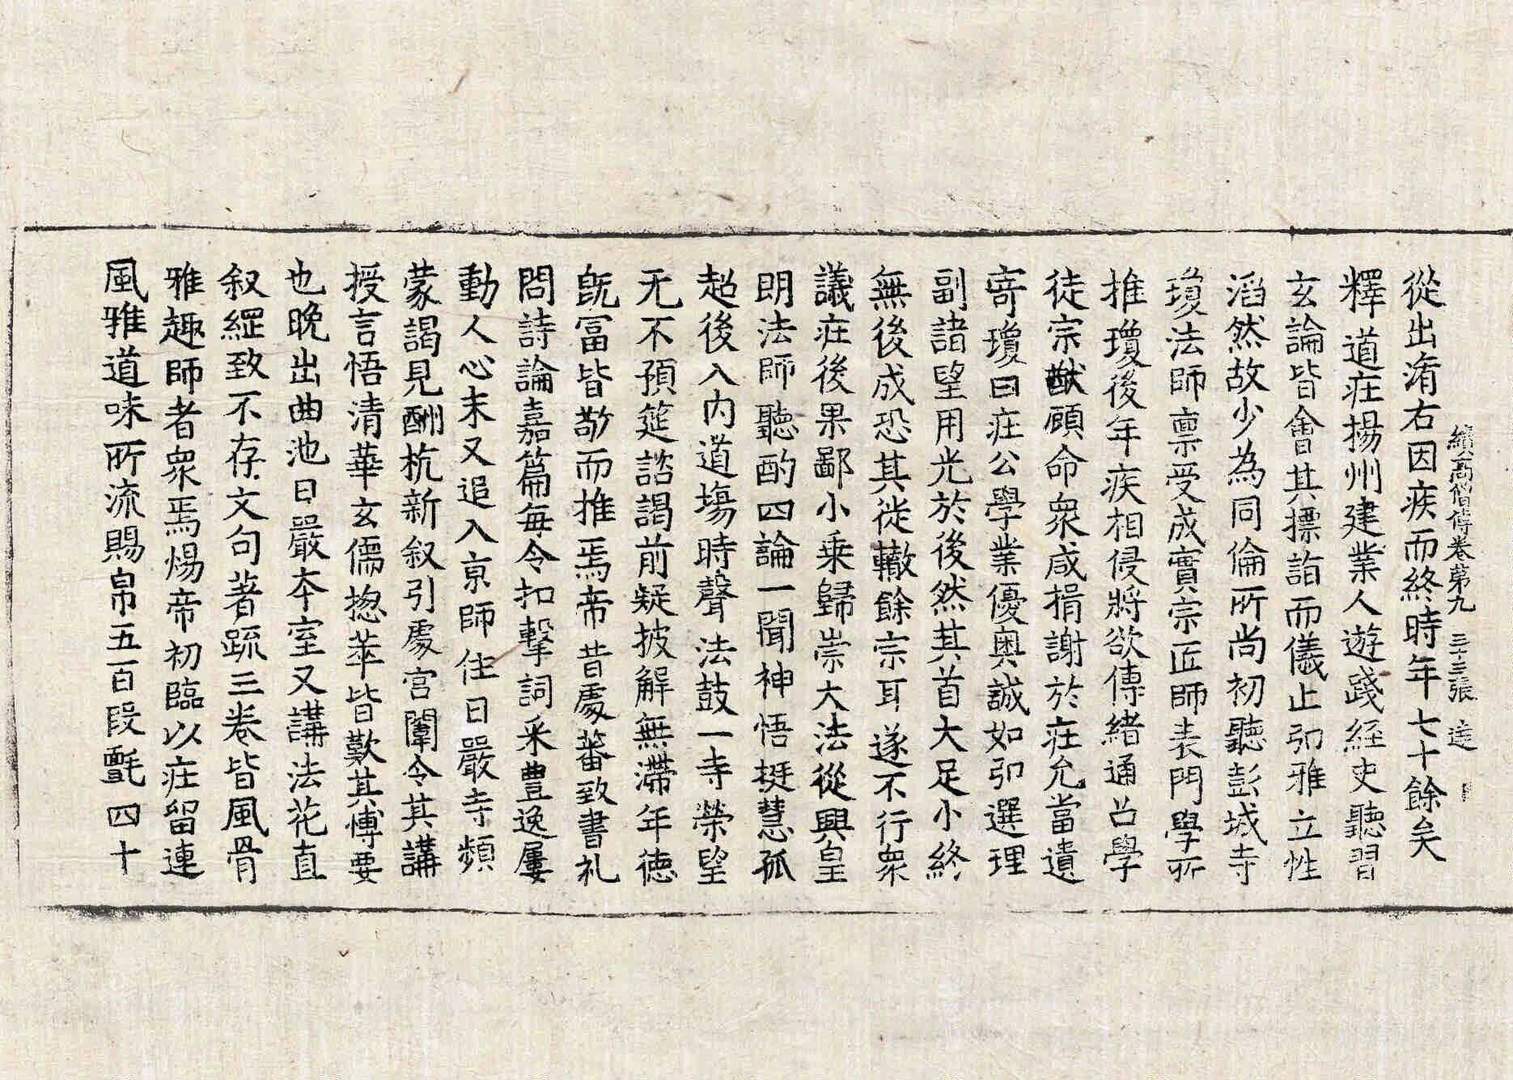 續高僧傳卷第九 三十三張 逵
從出淯右因疾而終時年七十餘矣
釋道莊揚州建業人遊踐經史聽習
玄論皆會其摽詣而儀止邪雅立性
滔然故少為同倫所尚初聽彭城寺
瓊法師禀受成實宗匠師表門學所
推瓊後年疾相侵將欲傳緒通召學
徒宗猷顧命衆咸揖謝於莊允當遺
寄瓊曰莊公學業優奧誠如邪選理
副諸望用光於後然其首大足小終
無後成恐其徙轍餘宗耳遂不行衆
議莊後果鄙小乗歸崇大法從興皇
朗法師聽酌四論一聞神悟挺慧孤
超後入内道塲時聲法鼓一寺榮望
无不預筵諮謁前疑披解無滯年德
旣冨皆敬而推焉帝昔處蕃致書礼
問詩論嘉篇每令扣擊詞采豊逸屢
動人心末又追入京師住日嚴寺頻
蒙謁見酬抗新叙引處宫闈令其講
授言悟清華玄儒揔萃皆歎其愽要
也晚出曲池日嚴夲室又講法花直
叙綱致不存文句著䟽三卷皆風骨
雅趣師者衆焉煬帝初臨以莊留連
風雅道味所流賜帛五百段氈四十